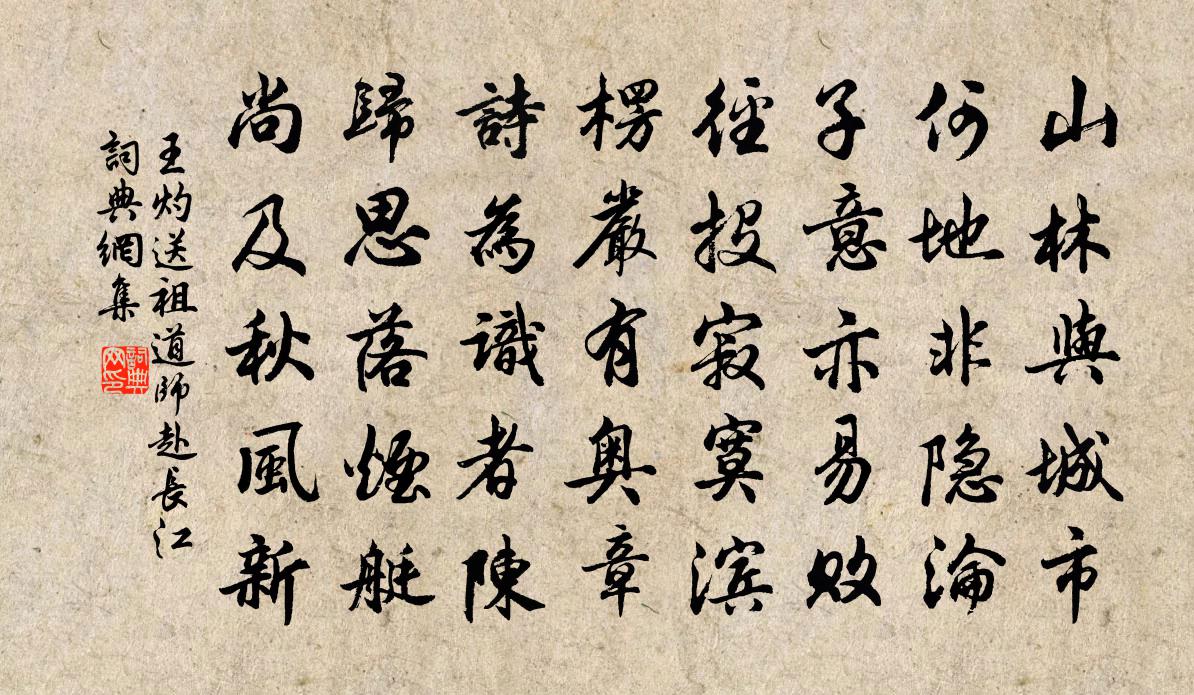 山林與城市
何地非隐淪
子意亦易败
徑投寂寞滨
楞嚴有奥章
詩為識者陳
歸思落煙艇
尚及秋風新
王灼送祖道師赴長江
詞典網集
詞典网印